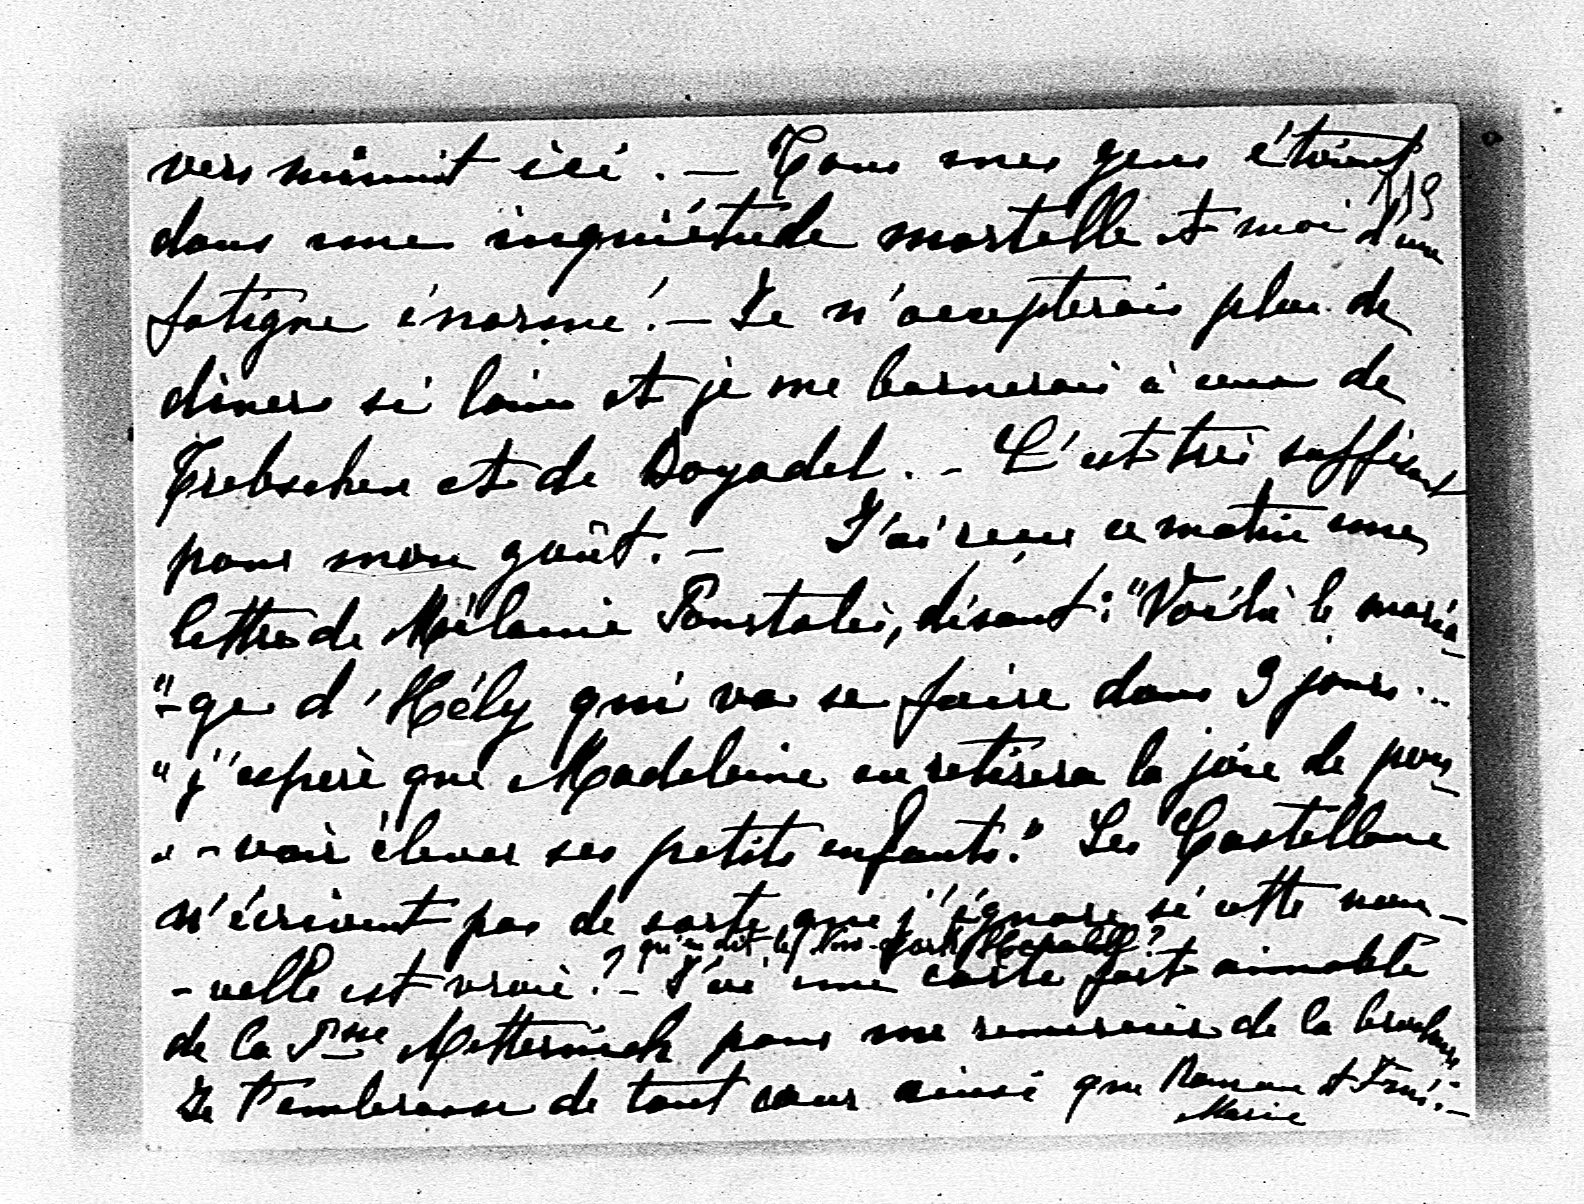 vers minuit ici. — Tous mes gens étaient
119
dans une inquiétude mortelle et moi d'une
fatigue énorme! — Je n'accepterais plus de
diners si loin et je me bornerais à ceux de
Trebschen et de Boyadel. — C'est très suffisant
pour mon goût. — J'ai reçu ce matin une
lettre de Mélanie Pourtalès, disant: "Voilà le maria-
"-ge d'Hély qui va se faire dans 9 jours...
"j'espère que Madeleine en retirera la joie de pou-
"-voir élever ses petits enfants." Les Castellane
n'écrivent pas de sorte que j'ignore si cette nou-
qu'en dit le New-York Herald?
-velle est vraie? — J'ai une carte fort aimable
de la Psse Metternich pour me remercier de la brochure
Je t'embrasse de tout cœur ainsi que et —
Marie